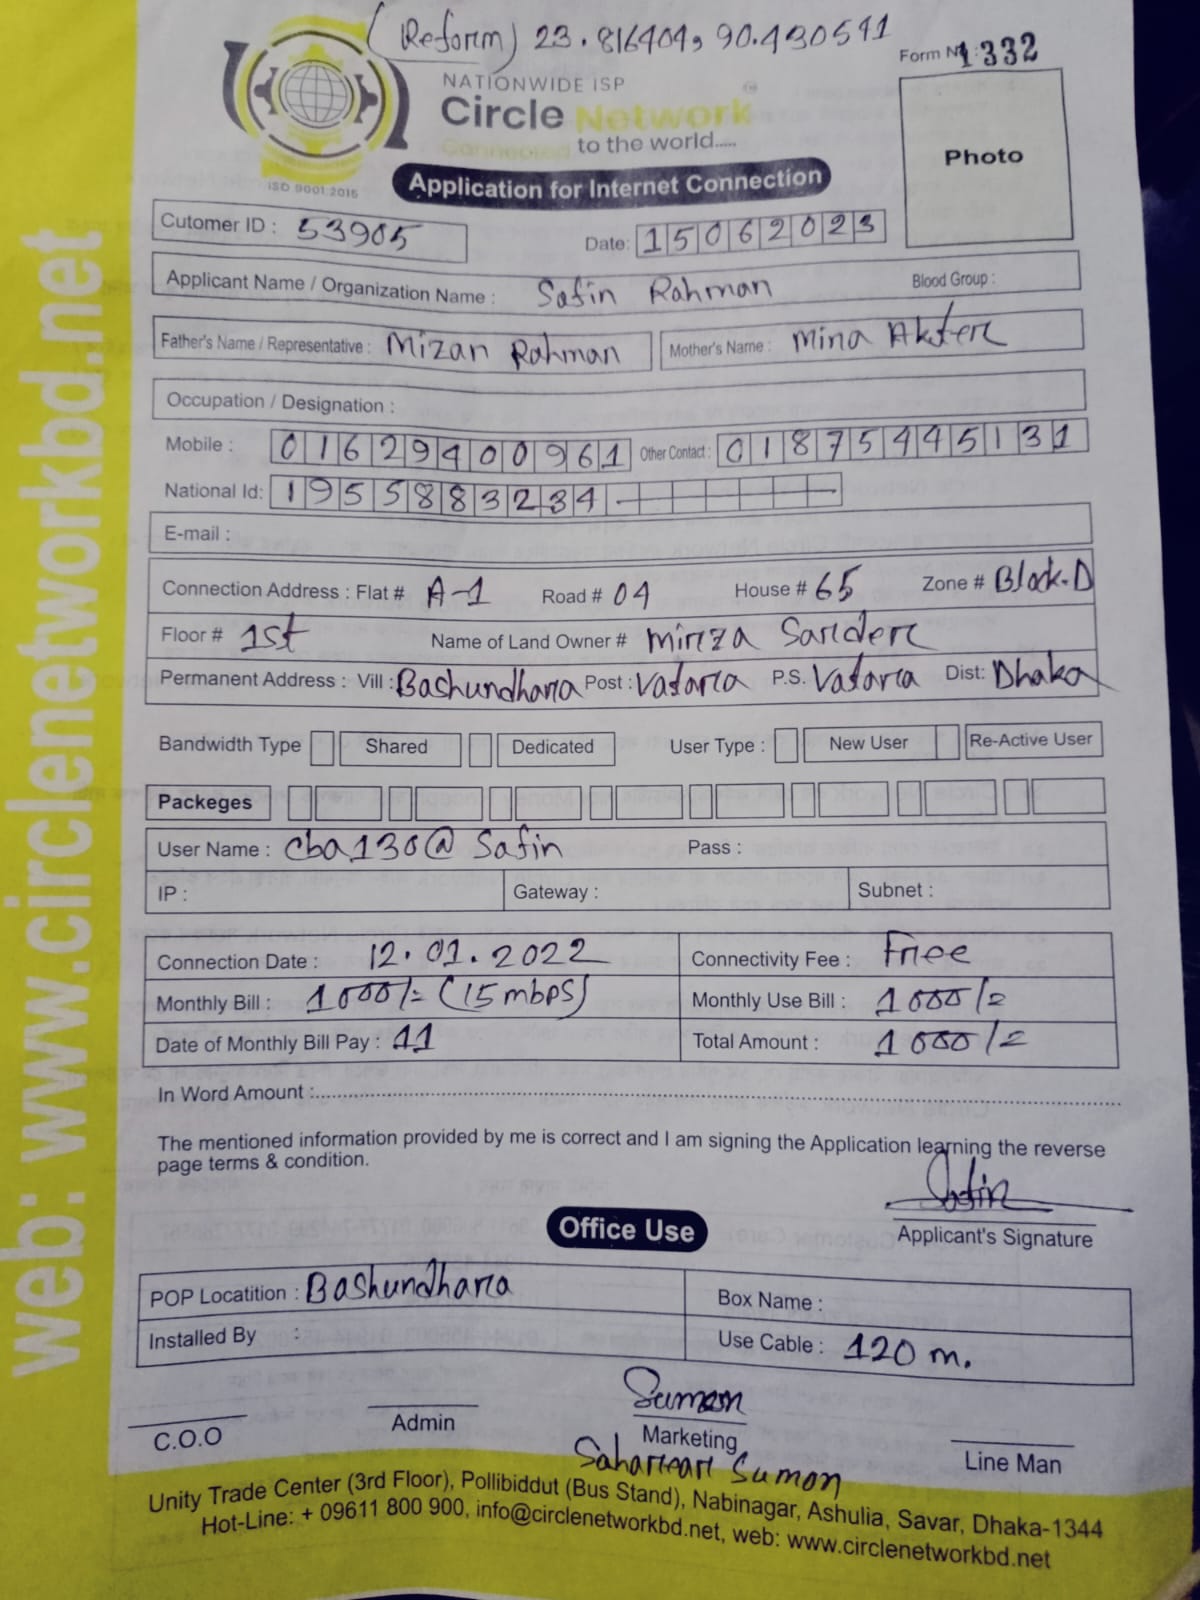 (Reform) 23.816404, 90.430541
Form No: 1332
NATIONWIDE ISP
Circle Network
Connected to the world.....
ISO 9001:2015
Photo
Application for Internet Connection
Cutomer ID : 53905
Date: 15062023
Applicant Name / Organization Name : Safin Rahman Blood Group :
Father's Name / Representative : Mizan Rahman Mother's Name : Mina Akter
Occupation / Designation :
Mobile : 01629400961 Other Contact : 01875445131
National Id: 1955883234
E-mail :
Connection Address : Flat # A-1 Road # 04 House # 65 Zone # Block-D
Floor # 1st Name of Land Owner # Mirza Sarder
Permanent Address : Vill : Bashundhara Post : Vatara P.S. Vatara Dist: Dhaka
Bandwidth Type Shared Dedicated User Type : New User Re-Active User
Packeges
User Name : cba130@safin Pass :
IP : Gateway : Subnet :
Connection Date : 12.01.2022 Connectivity Fee : Free
Monthly Bill : 1000/= (15 mbps) Monthly Use Bill : 1000/=
Date of Monthly Bill Pay : 11 Total Amount : 1000/=
In Word Amount :
The mentioned information provided by me is correct and I am signing the Application learning the reverse
page terms & condition.
Safin
Applicant's Signature
Office Use
POP Locatition : Bashundhara Box Name :
Installed By : Use Cable : 120 m.
Sumon
C.O.O Admin Marketing Line Man
Sumon
Unity Trade Center (3rd Floor), Pollibiddut (Bus Stand), Nabinagar, Ashulia, Savar, Dhaka-1344
Hot-Line: + 09611 800 900, info@circlenetworkbd.net, web: www.circlenetworkbd.net
web: www.circlenetworkbd.net